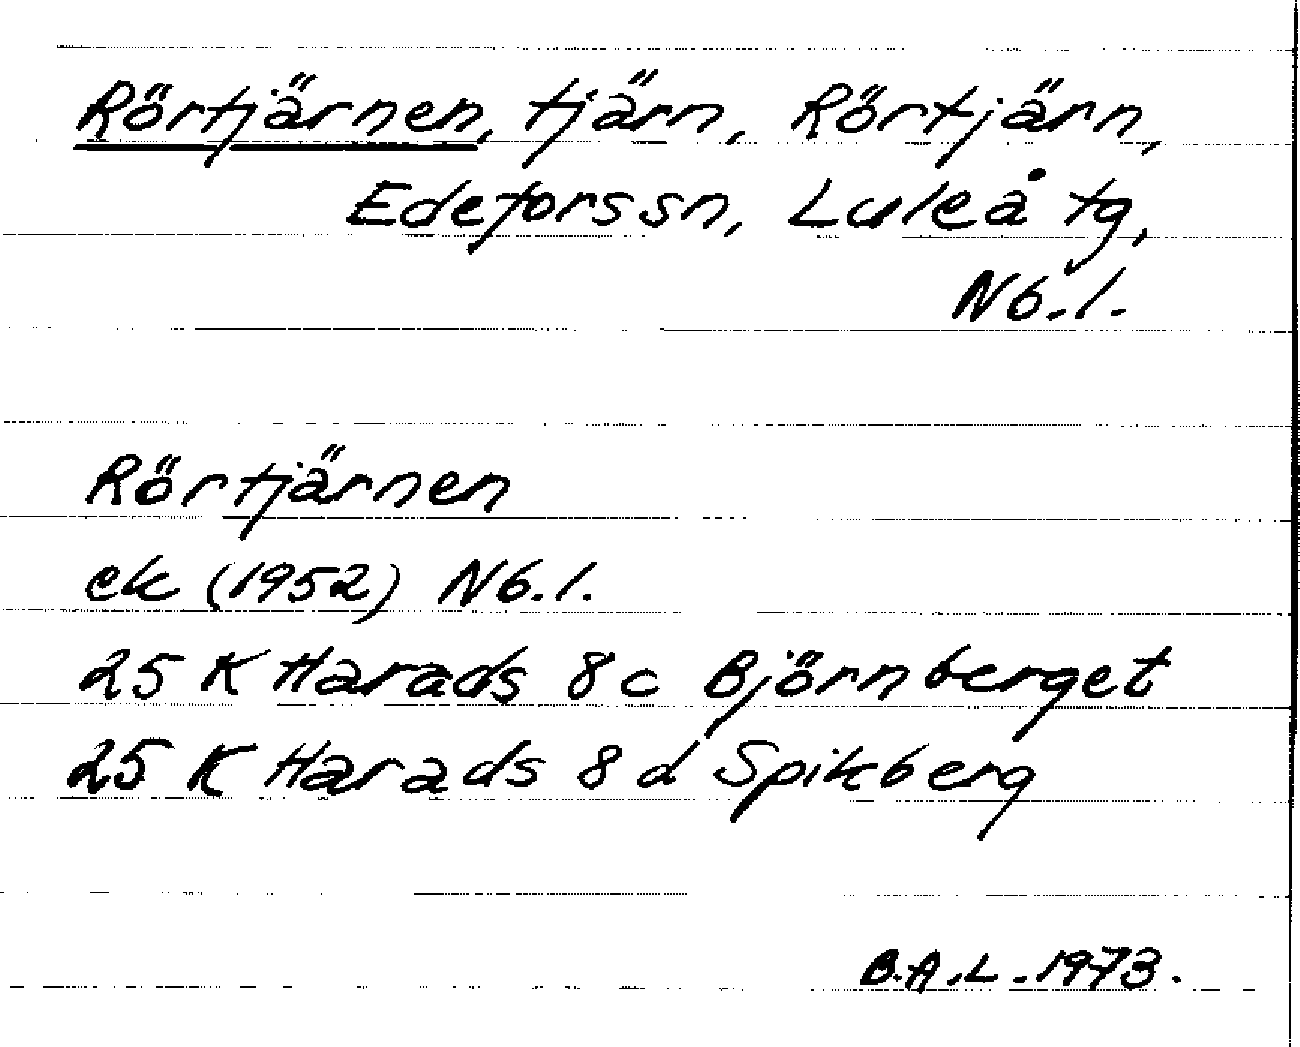 Rörtjärnen, tjärn, Rörtjärn,
Edeforssn, Luleå tg,
Nb.l.
Rörtjärnen
ek (1952) Nb.l.
25 K Harads 8c Björnberget
25 K Harads 8d Spikberg
B.A.L. 1973.